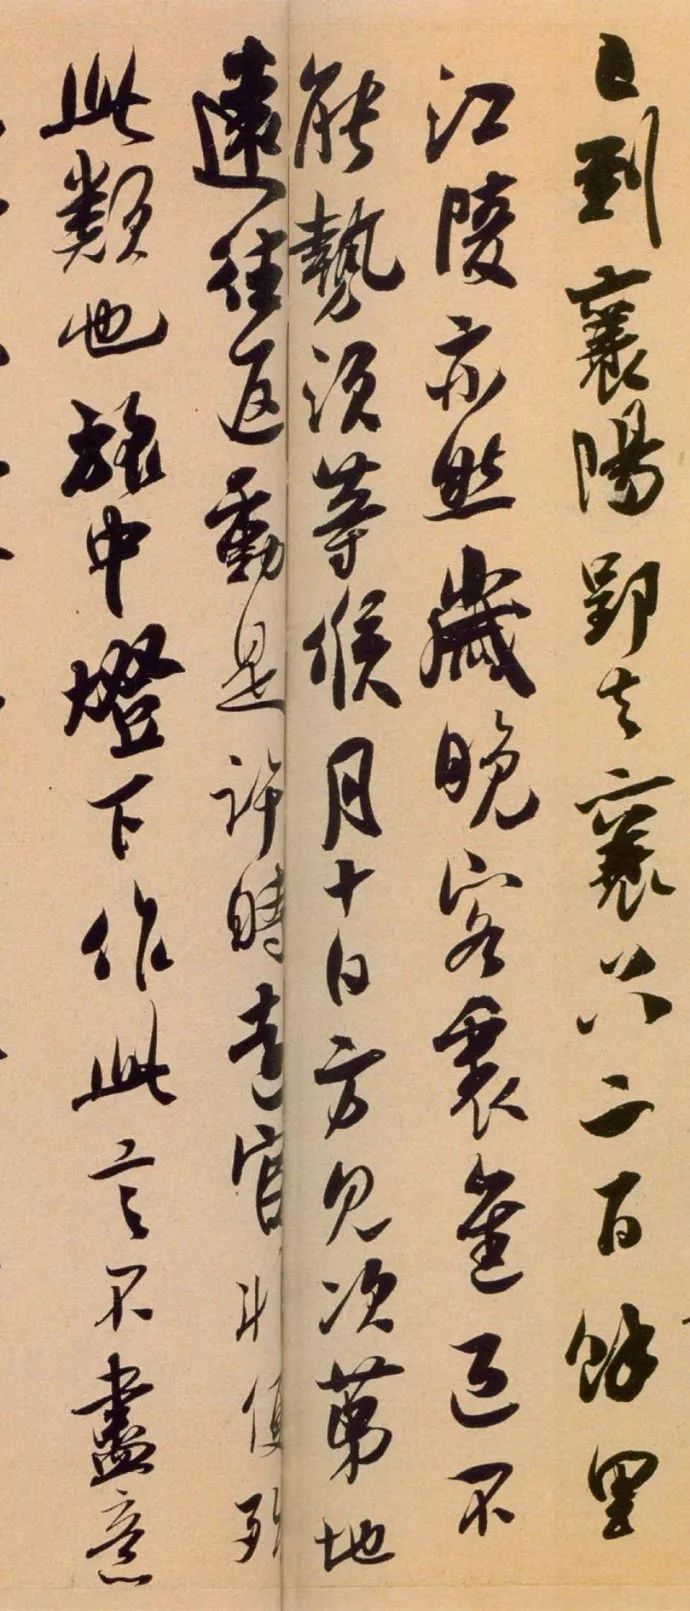 到襄陽郢去襄只二百餘里
江陵亦然歲晚客裏迫不
能勢須等候月十日方見次第地
遠往返動是許時遠官便殆
此類也旅中燈下作此言不盡意